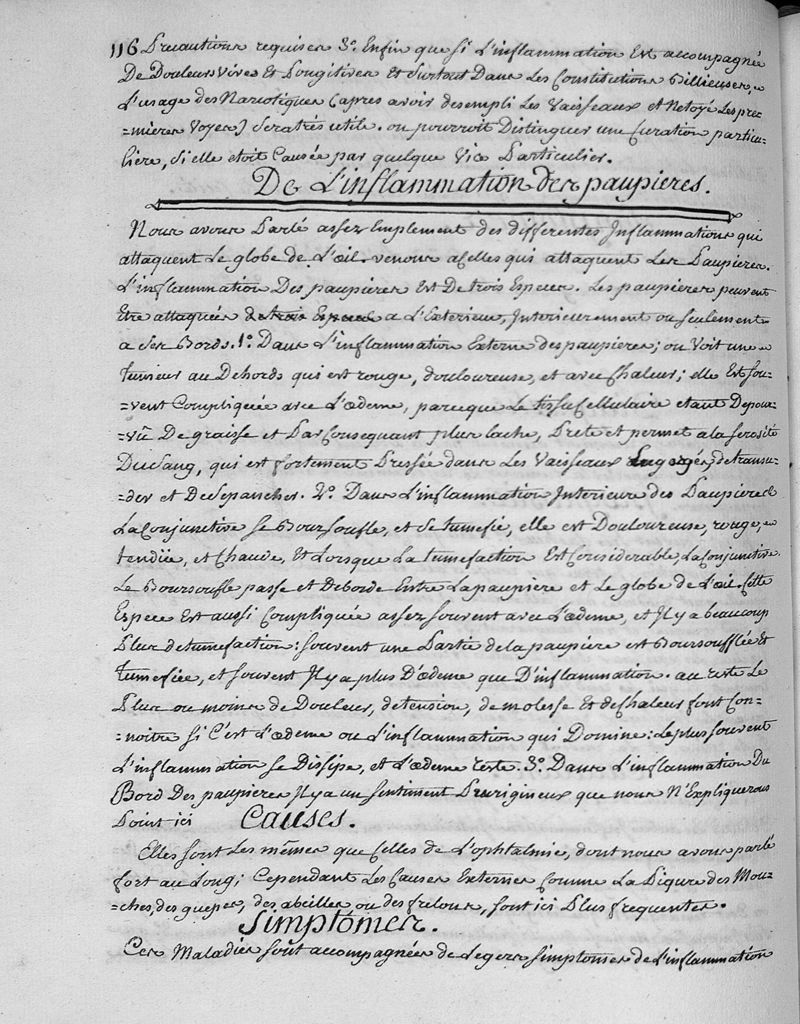 116 Precautions requises 3.º Enfin que si L'inflammation Est accompagnée
De Douleurs Vives Et Pongitives Et surtout Dans Les Constitutions Billieuses,
L'usage des Narcotiques (apres avoir desempli Les Vaisseaux et Netoyé Les pre
=mieres Voyes) sera tres utile. on pourroit Distinguer une Curation particu-
liere, si elle etoit Causée par quelque Vice Particulier.
De L'inflammation des paupieres.
Nous avons Parlé assez Emplement des differentes Inflammations qui
attaquent Le globe de L'œil. venons a Celles qui attaquent Les Paupieres.
L'inflammation Des paupieres Est De trois Especes. Les paupieres peuvent
Etre attaquées de trois Especes a L'Exterieur, Interieurement ou seulement
a Ses Bords. 1.º Dans L'inflammation Externe des paupieres; on Voit une
tumeur au Dehords qui est rouge, douloureuse, et avec Chaleur; elle Est sou-
=vent Compliquée avec L'œdeme, parceque Le tissu Cellulaire etant Depour-
=vû De graisse et Par Consequant plus lache, Prete et permet a la serosité
Du Sang, qui est fortement Pressée dans Les Vaisseaux Engorgés, de transu-
=der et De s'epancher. 2.º Dans L'inflammation Interieure des Paupieres
La Conjunctive se Boursoufle, et se tumefie, elle est Douloureuse, rouge,
tendüe, et Chaude, Et Lorsque La tumefaction Est Considerable, La Conjunctive
Se Boursoufle passe et Deborde Entre La paupiere et Le globe de L'œil. Cette
Espece Est aussi Compliquée assez souvent avec L'œdeme, et Il y a beaucoup
Plus de tumefaction: souvent une Partie de la paupiere est Boursoufflée Et
tumefiée, et souvent Il y a plus D'œdeme que D'inflammation. au reste Le
Plus ou moins de Douleur, de tension, de molesse Et de Chaleur font Con-
=noitre si C'est L'œdeme ou L'inflammation qui Domine: Le plus souvent
L'inflammation se Dissipe, et L'œdeme reste. 3.º Dans L'inflammation Du
Bord Des paupieres Il y a un sentiment Prurigineux que nous N'Expliquerons
Point ici Causes.
Elles sont Les mêmes que Celles de L'ophtalmie, dont nous avons parlé
fort au Long; Cependant Les Causes Externes Comme La Piqure des Mou-
=ches, des guepes, des abeilles ou des frelons, sont ici Plus frequentes.
Simptomes.
Ces Maladies sont accompagnées de Legers simptomes de L'inflammation